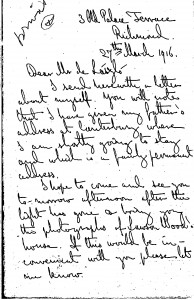 3 Old Palace Terrace
Richmond
27th March 1916.
Dear Mr de László
I send herewith a letter
about myself. You will note
that I have given my father's
address at Canterbury where
I am shortly going to stay
and which is a fairly permanent
address.
I hope to come and see you
to-morrow afternoon after the
light has gone &
the photographs of Lawson Wood's
house. If this would be in-
convenient will you please let
me know.